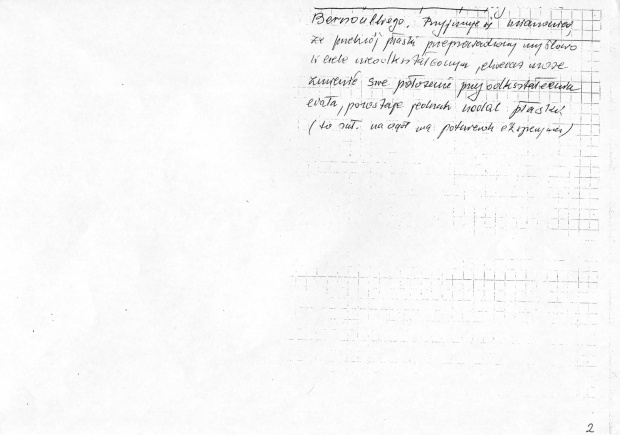 Bernoulliego. Przyjmuje się mianowicie,
że przekrój płaski przeprowadzony myślowo
w ciele nieodkształconym, chociaż może
zmienić swe położenie przy odkształceniu
ciała, pozostaje jednak nadal płaski
(to zał. na ogół ma potwierdz. eksperyment)
2